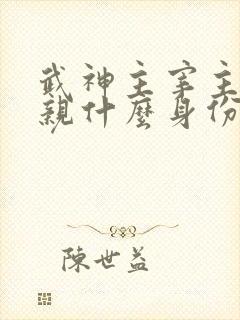 武神主宰主
親什麼身份
陳世益